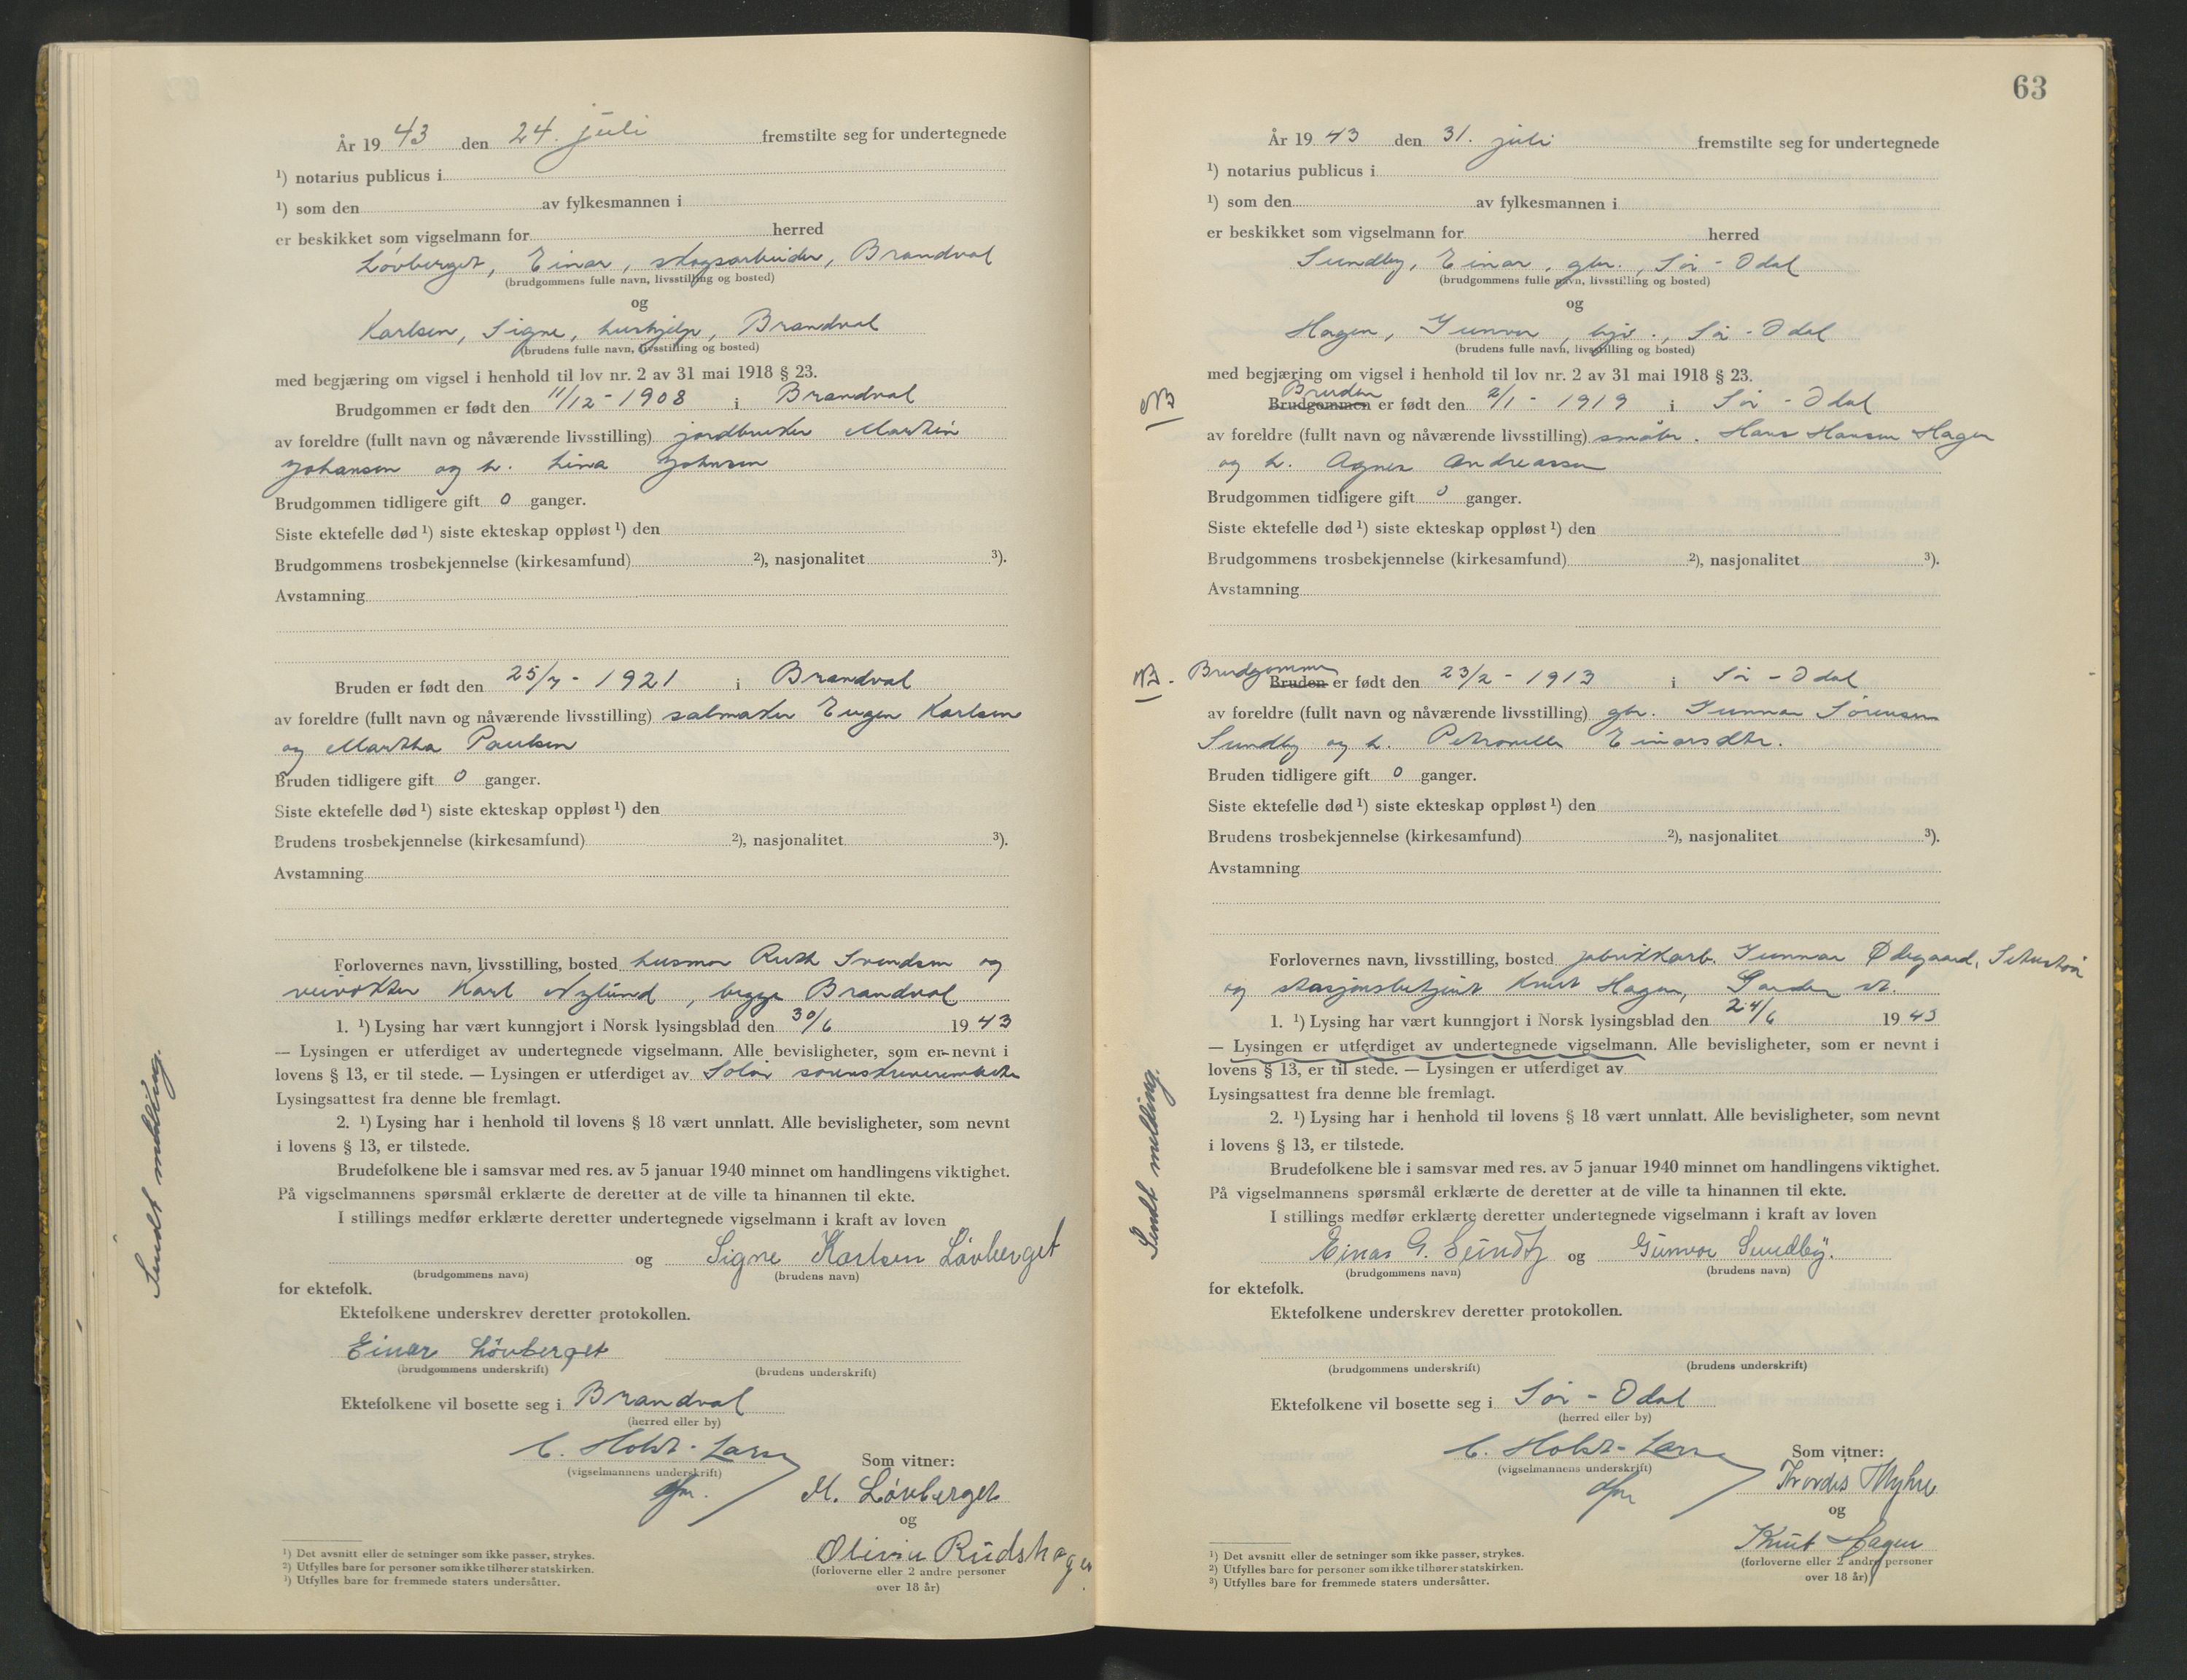 År 19 43 den 24. juli fremstilte seg for undertegnede
¹) notarius publicus i
¹) som den av fylkesmannen i
er beskikket som vigselmann for herred
Løvberget, Einar, skogsarbeider, Brandval
(brudgommens fulle navn, livsstilling og bosted)
og
Karlsen, Signe, hushjelp, Brandval
(brudens fulle navn, livsstilling og bosted)
med begjæring om vigsel i henhold til lov nr. 2 av 31 mai 1918 § 23.
Brudgommen er født den 11/12 - 1908 i Brandval
av foreldre (fullt navn og nåværende livsstilling) jordbruker Martin
Johansen og h. Lina Johnsen
Brudgommen tidligere gift 0 ganger.
Siste ektefelle død ¹) siste ekteskap oppløst ¹) den
Brudgommens trosbekjennelse (kirkesamfund) ²), nasjonalitet ³).
Avstamning
Bruden er født den 25/7 - 1921 i Brandval
av foreldre (fullt navn og nåværende livsstilling) salmaker Eugen Karlsen
og Martha Paulsen
Bruden tidligere gift 0 ganger.
Siste ektefelle død ¹) siste ekteskap oppløst ¹) den
Brudens trosbekjennelse (kirkesamfund) ²), nasjonalitet ³).
Avstamning
Forlovernes navn, livsstilling, bosted husmor Ruth Svendsen og
veivokter Karl Nylund, begge Brandval
1. ¹) Lysing har vært kunngjort i Norsk lysingsblad den 30/6 19 43
— Lysingen er utferdiget av undertegnede vigselmann. Alle bevisligheter, som er nevnt i
lovens § 13, er til stede. — Lysingen er utferdiget av Solør sorenskriverembete
Lysingsattest fra denne ble fremlagt.
2. ¹) Lysing har i henhold til lovens § 18 vært unnlatt. Alle bevisligheter, som nevnt
i lovens § 13, er tilstede.
Brudefolkene ble i samsvar med res. av 5 januar 1940 minnet om handlingens viktighet.
På vigselmannens spørsmål erklærte de deretter at de ville ta hinannen til ekte.
I stillings medfør erklærte deretter undertegnede vigselmann i kraft av loven
og Signe Karlsen Løvberget
(brudgommens navn) (brudens navn)
for ektefolk.
Ektefolkene underskrev deretter protokollen.
Einar Løvberget
(brudgommens underskrift) (brudens underskrift)
Ektefolkene vil bosette seg i Brandval
(herred eller by)
C. Holst-Larsen
(vigselmannens underskrift)
Som vitner:
M. Løvberget
og
Oliver Rudshagen
(forloverne eller 2 andre personer
over 18 år)
¹) Det avsnitt eller de setninger som ikke passer, strykes.
²) Utfylles bare for personer som ikke tilhører statskirken.
³) Utfylles bare for fremmede staters undersåtter.
Sendt melding.
63
År 19 43 den 31. juli fremstilte seg for undertegnede
¹) notarius publicus i
¹) som den av fylkesmannen i
er beskikket som vigselmann for herred
Sundby, Einar, gbr., Sør-Odal
(brudgommens fulle navn, livsstilling og bosted)
og
Hagen, Gunvor, Sør-Odal
(brudens fulle navn, livsstilling og bosted)
med begjæring om vigsel i henhold til lov nr. 2 av 31 mai 1918 § 23.
NB Bruden
Brudgommen er født den 2/1 - 1919 i Sør-Odal
av foreldre (fullt navn og nåværende livsstilling) småbr. Hans Hansen Hagen
og h. Agnes Andreassen
Brudgommen tidligere gift 0 ganger.
Siste ektefelle død ¹) siste ekteskap oppløst ¹) den
Brudgommens trosbekjennelse (kirkesamfund) ²), nasjonalitet ³).
Avstamning
NB. Brudgommen
Bruden er født den 23/2 - 1913 i Sør-Odal
av foreldre (fullt navn og nåværende livsstilling) gbr. Gunnar Sørensen
Sundby og h. Petronelle Einarsdtr.
Bruden tidligere gift 0 ganger.
Siste ektefelle død ¹) siste ekteskap oppløst ¹) den
Brudens trosbekjennelse (kirkesamfund) ²), nasjonalitet ³).
Avstamning
Forlovernes navn, livsstilling, bosted fabrikkarb. Gunnar Ødegaard,
og stasjonsbetjent Knut Hagen, st.
1. ¹) Lysing har vært kunngjort i Norsk lysingsblad den 24/6 19 43
— Lysingen er utferdiget av undertegnede vigselmann. Alle bevisligheter, som er nevnt i
lovens § 13, er til stede. — Lysingen er utferdiget av
Lysingsattest fra denne ble fremlagt.
2. ¹) Lysing har i henhold til lovens § 18 vært unnlatt. Alle bevisligheter, som nevnt
i lovens § 13, er tilstede.
Brudefolkene ble i samsvar med res. av 5 januar 1940 minnet om handlingens viktighet.
På vigselmannens spørsmål erklærte de deretter at de ville ta hinannen til ekte.
I stillings medfør erklærte deretter undertegnede vigselmann i kraft av loven
Einar G. Sundby og Gunvor Sundby.
(brudgommens navn) (brudens navn)
for ektefolk.
Ektefolkene underskrev deretter protokollen.
(brudgommens underskrift) (brudens underskrift)
Ektefolkene vil bosette seg i Sør-Odal
(herred eller by)
C. Holst-Larsen
(vigselmannens underskrift)
Som vitner:
Tordis Myhre
og
Knut Hagen
(forloverne eller 2 andre personer
over 18 år)
¹) Det avsnitt eller de setninger som ikke passer, strykes.
²) Utfylles bare for personer som ikke tilhører statskirken.
³) Utfylles bare for fremmede staters undersåtter.
Sendt melding.